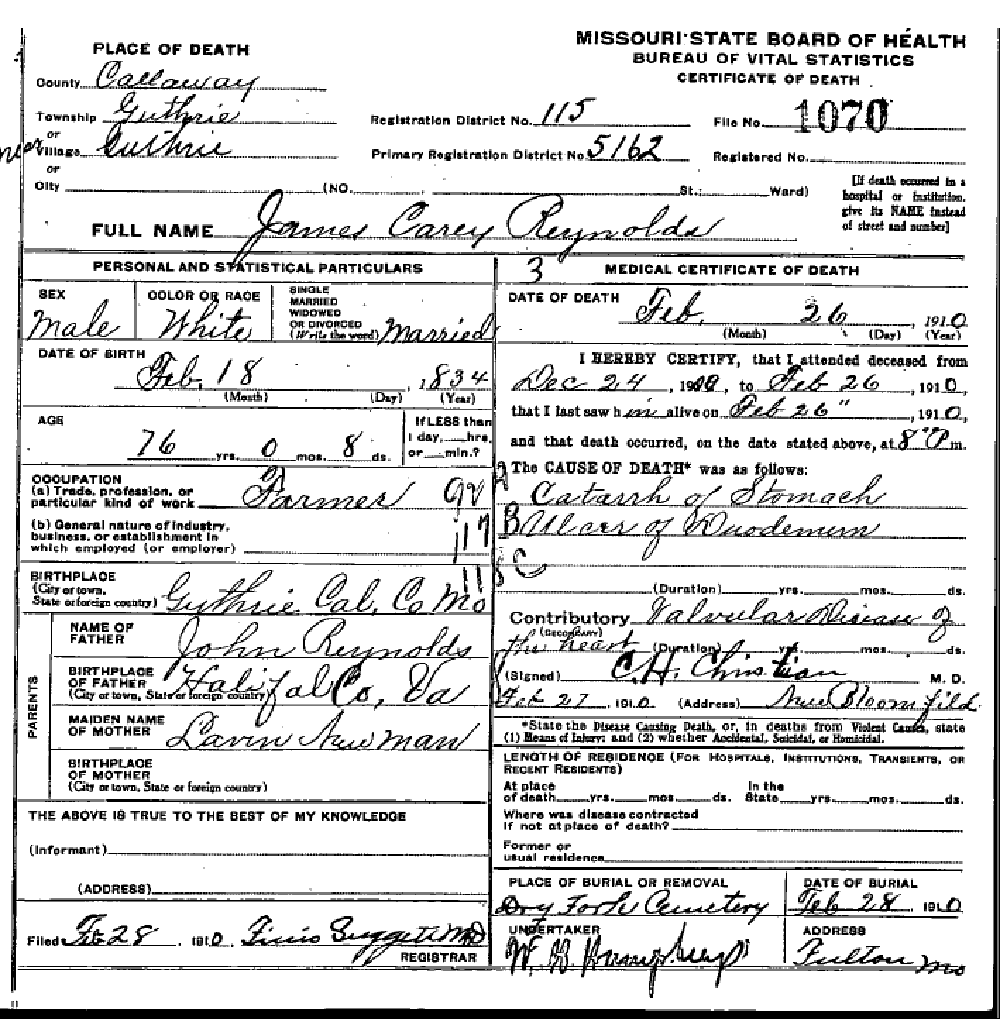 MISSOURI STATE BOARD OF HEALTH
BUREAU OF VITAL STATISTICS
CERTIFICATE OF DEATH
PLACE OF DEATH
County Callaway
Township Guthrie
or
Village Guthrie
or
City (NO. St.; Ward)
Registration District No. 115
File No. 1070
Primary Registration District No. 5162
Registered No.
[If death occurred in a
hospital or institution,
give its NAME instead
of street and number]
FULL NAME James Carey Reynolds
PERSONAL AND STATISTICAL PARTICULARS
SEX
Male
COLOR OR RACE
White
SINGLE
MARRIED
WIDOWED
OR DIVORCED
(Write the word) Married
DATE OF BIRTH
Feb. 18, 1834
(Month) (Day) (Year)
AGE
76 yrs. 0 mos. 8 ds.
If LESS than
1 day, hrs.
or min.?
OCCUPATION
(a) Trade, profession, or
particular kind of work Farmer
(b) General nature of industry,
business, or establishment in
which employed (or employer)
BIRTHPLACE
(City or town,
State or foreign country) Guthrie Cal. Co Mo
PARENTS
NAME OF
FATHER John Reynolds
BIRTHPLACE
OF FATHER
(City or town, State or foreign country) Halifal Co, Va
MAIDEN NAME
OF MOTHER Lavin Newman
BIRTHPLACE
OF MOTHER
(City or town, State or foreign country)
THE ABOVE IS TRUE TO THE BEST OF MY KNOWLEDGE
(Informant)
(ADDRESS)
Filed Feb 28, 1910, MD
REGISTRAR
3 MEDICAL CERTIFICATE OF DEATH
DATE OF DEATH
Feb. 26, 1910
(Month) (Day) (Year)
I HEREBY CERTIFY, that I attended deceased from
Dec 24, to Feb 26, 1910,
that I last saw him alive on Feb 26", 1910,
and that death occurred, on the date stated above, at 8 P m.
The CAUSE OF DEATH* was as follows:
Catarrh of Stomach
Ulcer of Duodemem
(Duration) yrs. mos. ds.
Contributory Valvular Disease of
(Secondary)
the heart (Duration) yrs. mos. ds.
(Signed) C.H. Christian M. D.
Feb 27, 1910. (Address) New Bloomfild
*State the Disease Causing Death, or, in deaths from Violent Causes, state
(1) Means of Injury; and (2) whether Accidental, Suicidal, or Homicidal.
LENGTH OF RESIDENCE (FOR HOSPITALS, INSTITUTIONS, TRANSIENTS, OR
RECENT RESIDENTS)
At place
of death yrs. mos. ds.
In the
State yrs. mos. ds.
Where was disease contracted
if not at place of death?
Former or
usual residence
PLACE OF BURIAL OR REMOVAL
Dry Fork Cemetery
DATE OF BURIAL
Feb 28 1910
UNDERTAKER
W. B. Humphreys
ADDRESS
Fulton Mo